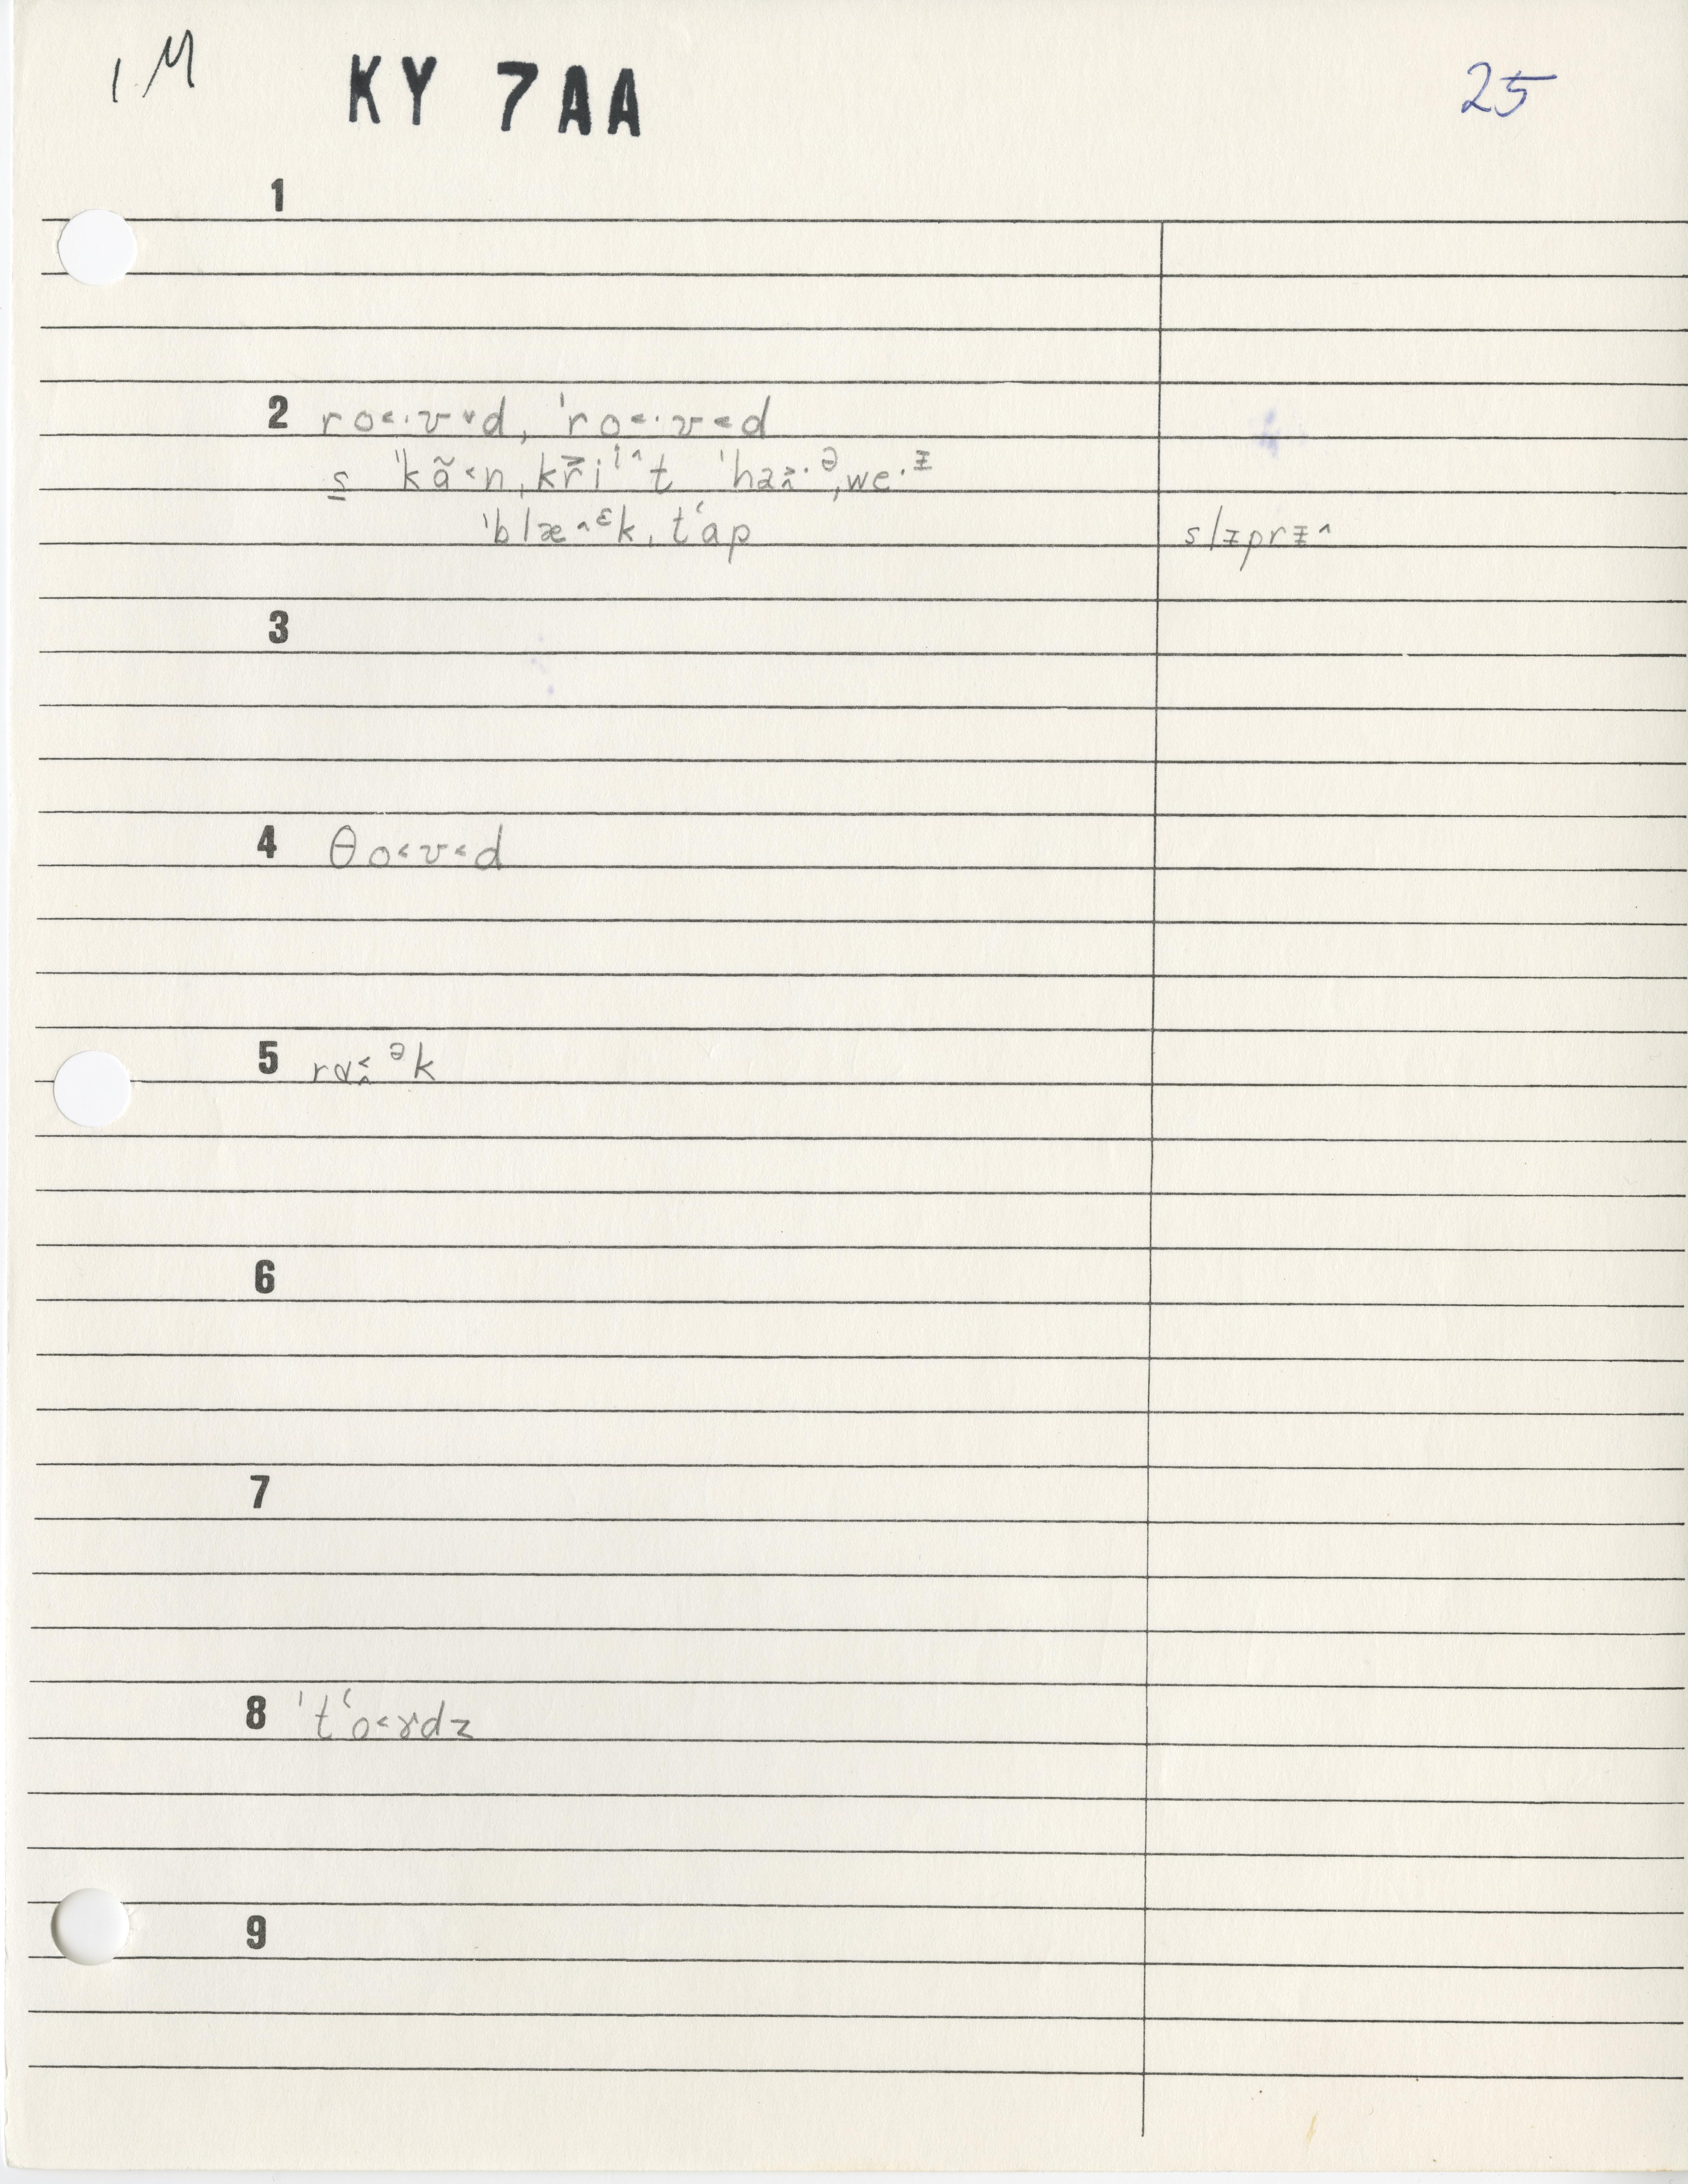 1M KY 7AA 25
1
2 ro˂·ʊ˅d, ˈro˂·ʊ˂d
s̲ ˈkɑ̃˂n,kr̆iⁱ˄t ˈhaɪ·ᵊ,we·ᵻ
ˈblæ˄ᵋk,tʻap slɪprɪ˄
3
4 θo˂ʊ˂d
5 rɑ˂˄ᵊk
6
7
8 ˈtʻo˂ɤdz
9